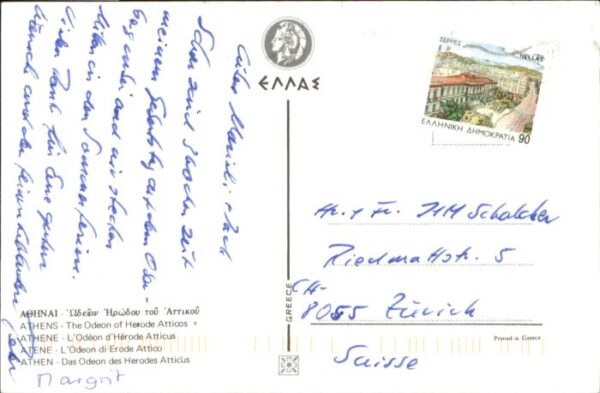 ΕΛΛΑΣ
ΣΕΡΡΕΣ
HELLAS
ΕΛΛΗΝΙΚΗ ΔΗΜΟΚΡΑΤΙΑ 90
Schon sind Wochen seit
meinem Geburtstag auf dem Ober-
und wir stecken
mitten in den Sommerferien.
Vielen Dank für Eure guten
Wünsche und den feinen
Margrit
Hr. + Fr.
Riedmattstr. 5
CH-
8055 Zürich
Suisse
GREECE
ΑΘΗΝΑΙ - Ὠδεῖον Ἡρώδου τοῦ Ἀττικοῦ
ATHENS - The Odeon of Herode Atticos
ATHENE - L'Odéon d'Hérode Atticus
ATENE - L'Odeon di Erode Attico
ATHEN - Das Odeon des Herodes Atticus
Printed in Greece